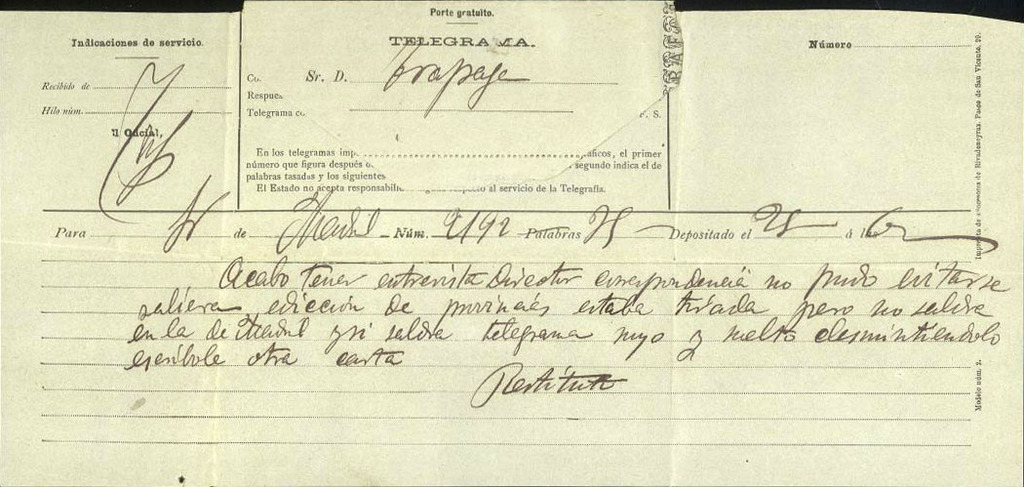 Porte gratuito.
Indicaciones de servicio.
TELEGRAMA.
Número
Recibido de
Hilo núm.
l Oficial,
Co.
Sr. D.
Respue
Telegrama co
. S.
En los telegramas imp áficos, el primer
número que figura después segundo indica el de
palabras tasadas y los siguientes
El Estado no acepta responsabili respecto al servicio de la Telegrafía.
Para de Madrid Núm. 2192 Palabras 35 Depositado el 25 á las
Acabo tener entrevista Director correspondencia no pudo evitarse
saliera edicción de provincias estaba tirada pero no saldra
en la de Madrid y si saldra telegrama suyo y suelto desmintiendolo
escribole otra carta
Restituto
Imprenta de sucesores de Rivadeneyra, Paseo de San Vicente, 20.
Modelo núm. 2.